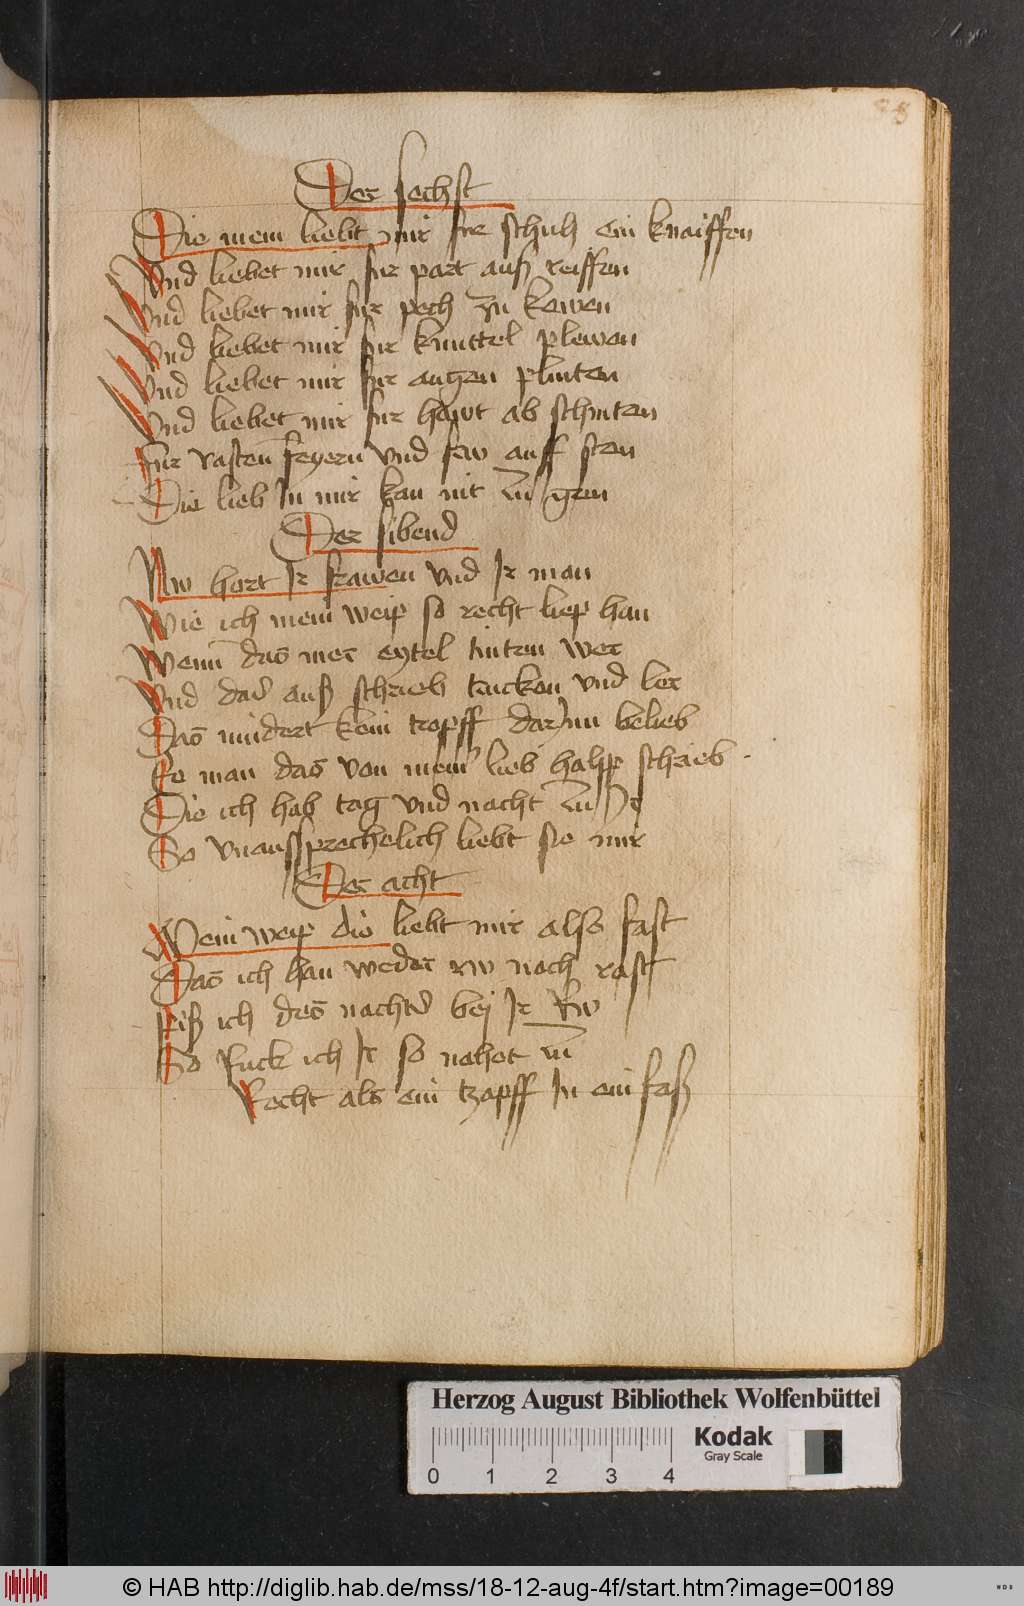 Der sechst
Die mein liebt mir fur schuh ein knaiffen
Vnd liebet mir fur part auß reiffen
Vnd liebet mir fur pech zu kewen
Vnd liebet mir fur knuttel plewen
Vnd liebet mir fur augen plinten
Vnd liebet mir fur hawt ab schinten
Fur vasten feyern vnd frw auff sten
Die lieb In mir kan nit zu gen
Der sibend
Nw hort Ir frawen vnd Ir man
Wie ich mein weip so recht liep han
Wenn das mer eytel tinten wer
Vnd dar auß schrieb trucken vnd ler
Das nindert kein tropff darInn belieb
Ee man das von meinr lieb halpp schrieb
Die ich hab tag vnd nacht zu Ir
So vnaussprechelich liebt sie mir
Der acht
Mein weip die liebt mir also fast
Das ich han weder rw noch rast
Piß ich des nachts bej Ir Rw
So Ruck ich Ir so nahet zu
Recht als ein tzapff In ein faß
Herzog August Bibliothek Wolfenbüttel
Kodak
Gray Scale
0 1 2 3 4
© HAB http://diglib.hab.de/mss/18-12-aug-4f/start.htm?image=00189